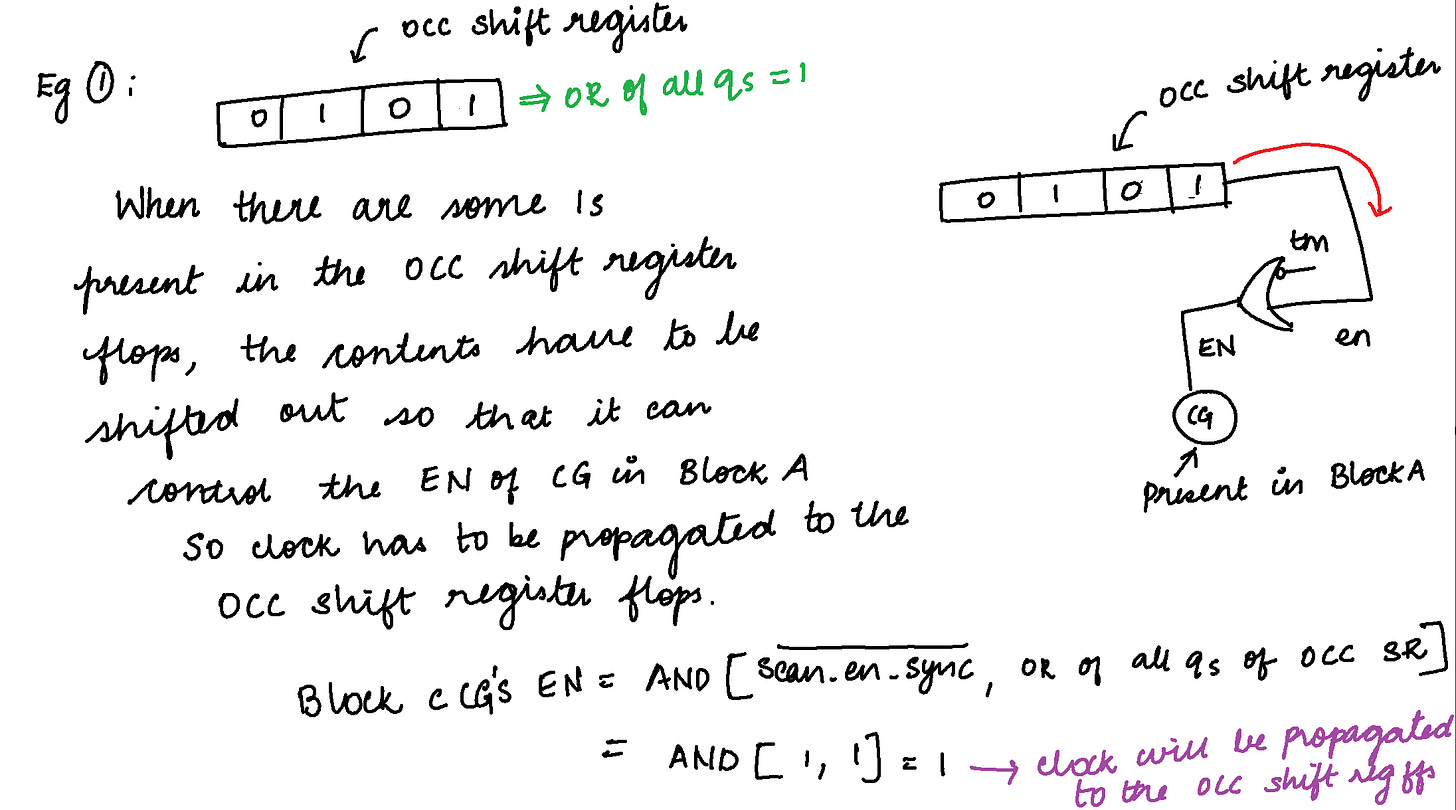 occ shift register
Eg ① :
0 1 0 1 ⇒ OR of all qs = 1
When there are some 1s
present in the OCC shift register
flops, the contents have to be
shifted out so that it can
control the EN of CG in Block A
So clock has to be propagated to the
OCC shift register flops.
occ shift register
0 1 0 1
tm
EN
en
CG
Present in Block A
Block C CG's EN = AND [ \overline{scan_en_sync}, OR of all qs of OCC SR ]
= AND [ 1, 1 ] = 1 → clock will be propagated
to the OCC shift reg ffs